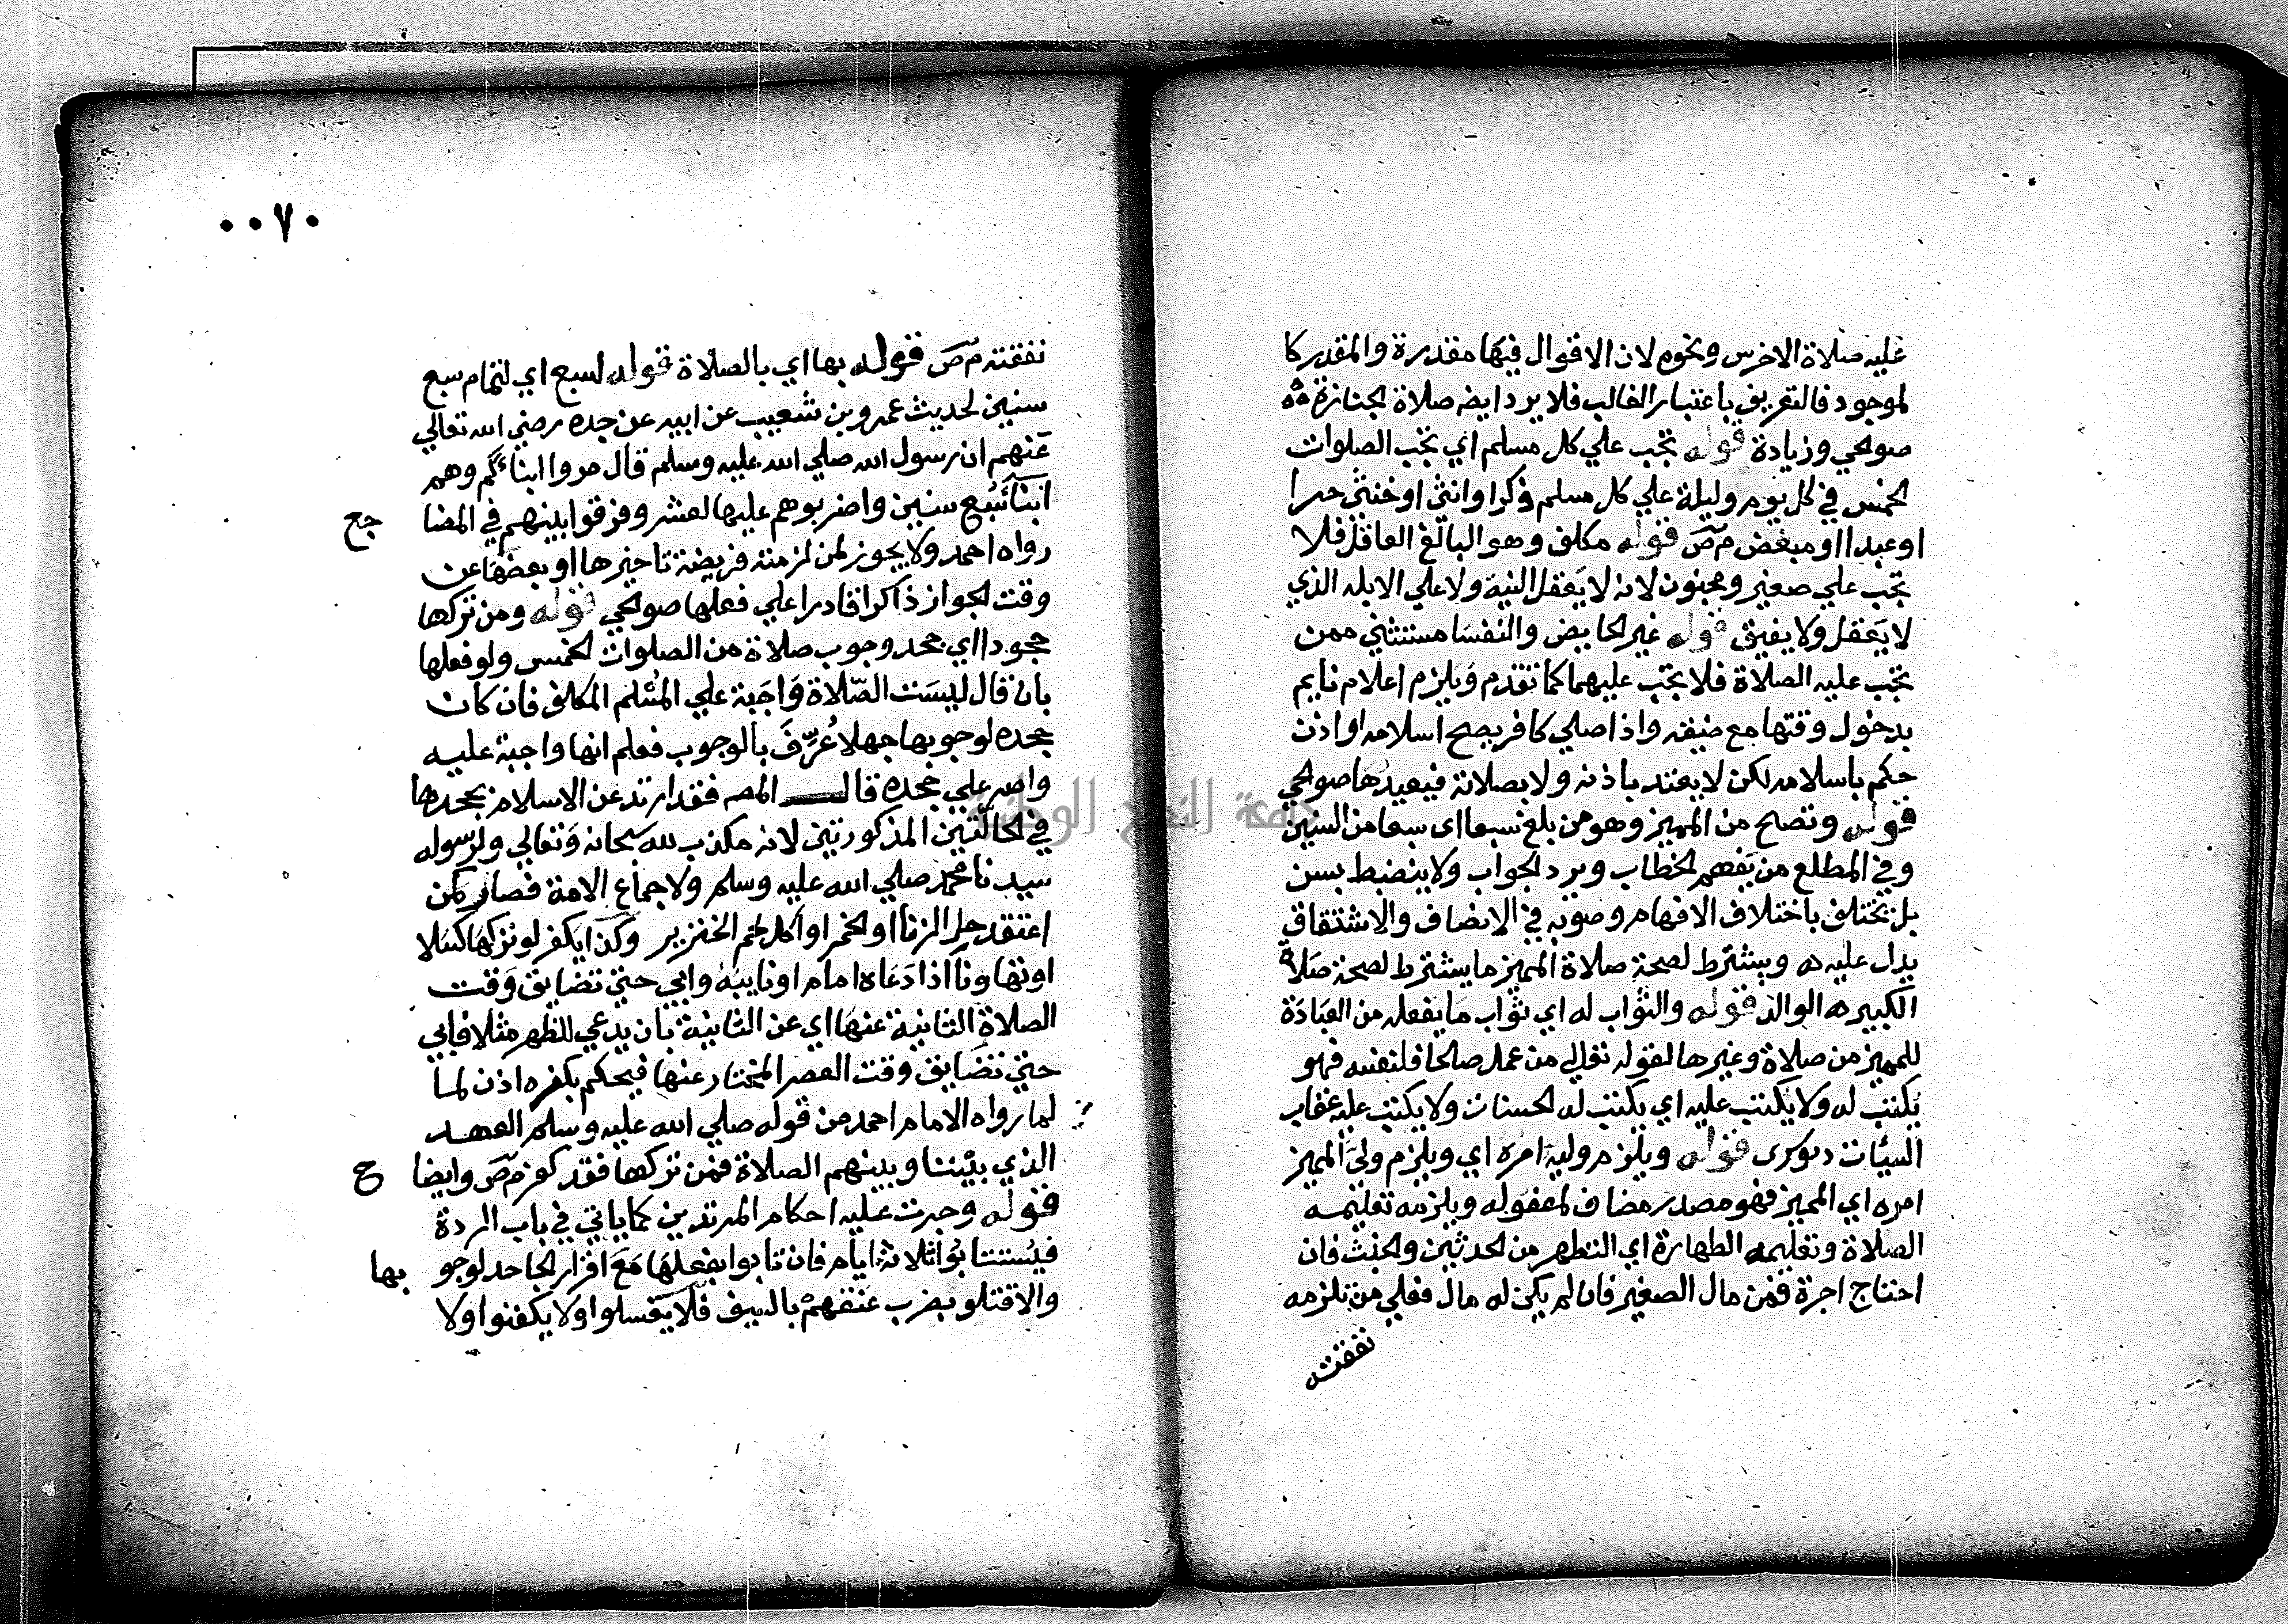 عليه صلاة الاخرس ونحوه لان الاقوال فيها مقدرة والمقدر كا
لموجود فالتعريف باعتبار الغالب فلا يرد ايضا صلاة الجنازة
صوالحي وزيادة قوله تجب علي كل مسلم اي تجب الصلوات
الخمس في كل يوم وليلة علي كل مسلم ذكرا وانثي او خنثي حرا
او عبدا او مبعض م ص قوله مكلف وهو البالغ العاقل فلا
تجب علي صغير ومجنون لانه لا يعقل النية ولا علي الابله الذي
لا يعقل ولا يفيق قوله غير الحايض والنفسا مستثني ممن
تجب عليه الصلاة فلا تجب عليهما كما تقدم ويلزم اعلام نايم
بدخول وقتها مع ضيقه واذا صلي كافر يصح اسلامه او اذن
حكم باسلامه لكن لا يعتد باذنه ولا بصلاته فيعيدها صوالحي
قوله وتصح من المميز وهو من بلغ سبعا اي سبعا من السنين
وفي المطلع من يفهم الخطاب ويرد الجواب ولا ينضبط بسن
بل يختلف باختلاف الافهام وصوبه في الانصاف والاشتقاق
يدل عليه ه ويشترط لصحة صلاة المميز ما يشترط لصحة صلاة
الكبير ه الوالد قوله والثواب له اي ثواب ما يفعله من العبادة
للمميز من صلاة وغيرها لقوله تعالي من عمل صالحا فلنفسه فهو
يكتب له ولا يكتب عليه اي يكتب له الحسنات ولا يكتب عليه عقاب
السيئات دنوكرى قوله ويلزم وليه امره اي ويلزم ولي المميز
امره اي المميز فهو مصدر مضاف لمفعوله ويلزمه تعليمه
الصلاة وتعليمه الطهارة اي التطهر من الحدثين والخبث فان
احتاج اجرة فمن مال الصغير فان لم يكن له مال فعلي من تلزمه
نفقته
٠٠٧٠
نفقته م ص قوله بها اي بالصلاة قوله لسبع اي لتمام سبع
سنين لحديث عمرو بن شعيب عن ابيه عن جده رضي الله تعالي
عنهم ان رسول الله صلي الله عليه وسلم قال مروا ابنائكم وهم
ابنا سبع سنين واضربوهم عليها لعشر وفرقوا بينهم في المضا جع
رواه احمد ولا يجوز لمن لزمته فريضة تاخيرها او بعضها عن
وقت الجواز ذاكرا قادرا علي فعلها صوالحي قوله ومن تركها
جحودا اي جحد وجوب صلاة من الصلوات الخمس ولو فعلها
بان قال ليست الصلاة واجبة علي المسلم المكلف فان كان
جحده لوجوبها جهلا عرف بالوجوب فعلم انها واجبة عليه
واصر علي جحده قال المص فقد ارتد عن الاسلام بجحدها
في الحالتين المذكورتين لانه مكذب لله سبحانه وتعالي ولرسوله
سيدنا محمد صلي الله عليه وسلم ولاجماع الامة فصار كمن
اعتقد حل الزنا او الخمر او اكل لحم الخنزير وكذا يكفر لو تركها كسلا
او تهاونا اذا دعاه امام او نايبه وابي حتي تضايق وقت
الصلاة الثانية عنها اي عن الثانية بان يدعي للظهر مثلا فيابي
حتي تضايق وقت العصر المختار عنها فيحكم بكفره اذن لما
لما رواه الامام احمد من قوله صلي الله عليه وسلم العهد
الذي بيننا وبينهم الصلاة فمن تركها فقد كفر م ص وايضا ح
قوله وجرت عليه احكام المرتدين كما ياتي في باب الردة
فيستتابوا ثلاثة ايام فان تابوا بفعلها مع اقرار الجاحد لوجو بها
والا قتلو بضرب عنقهم بالسيف فلا يغسلوا ولا يكفنوا ولا